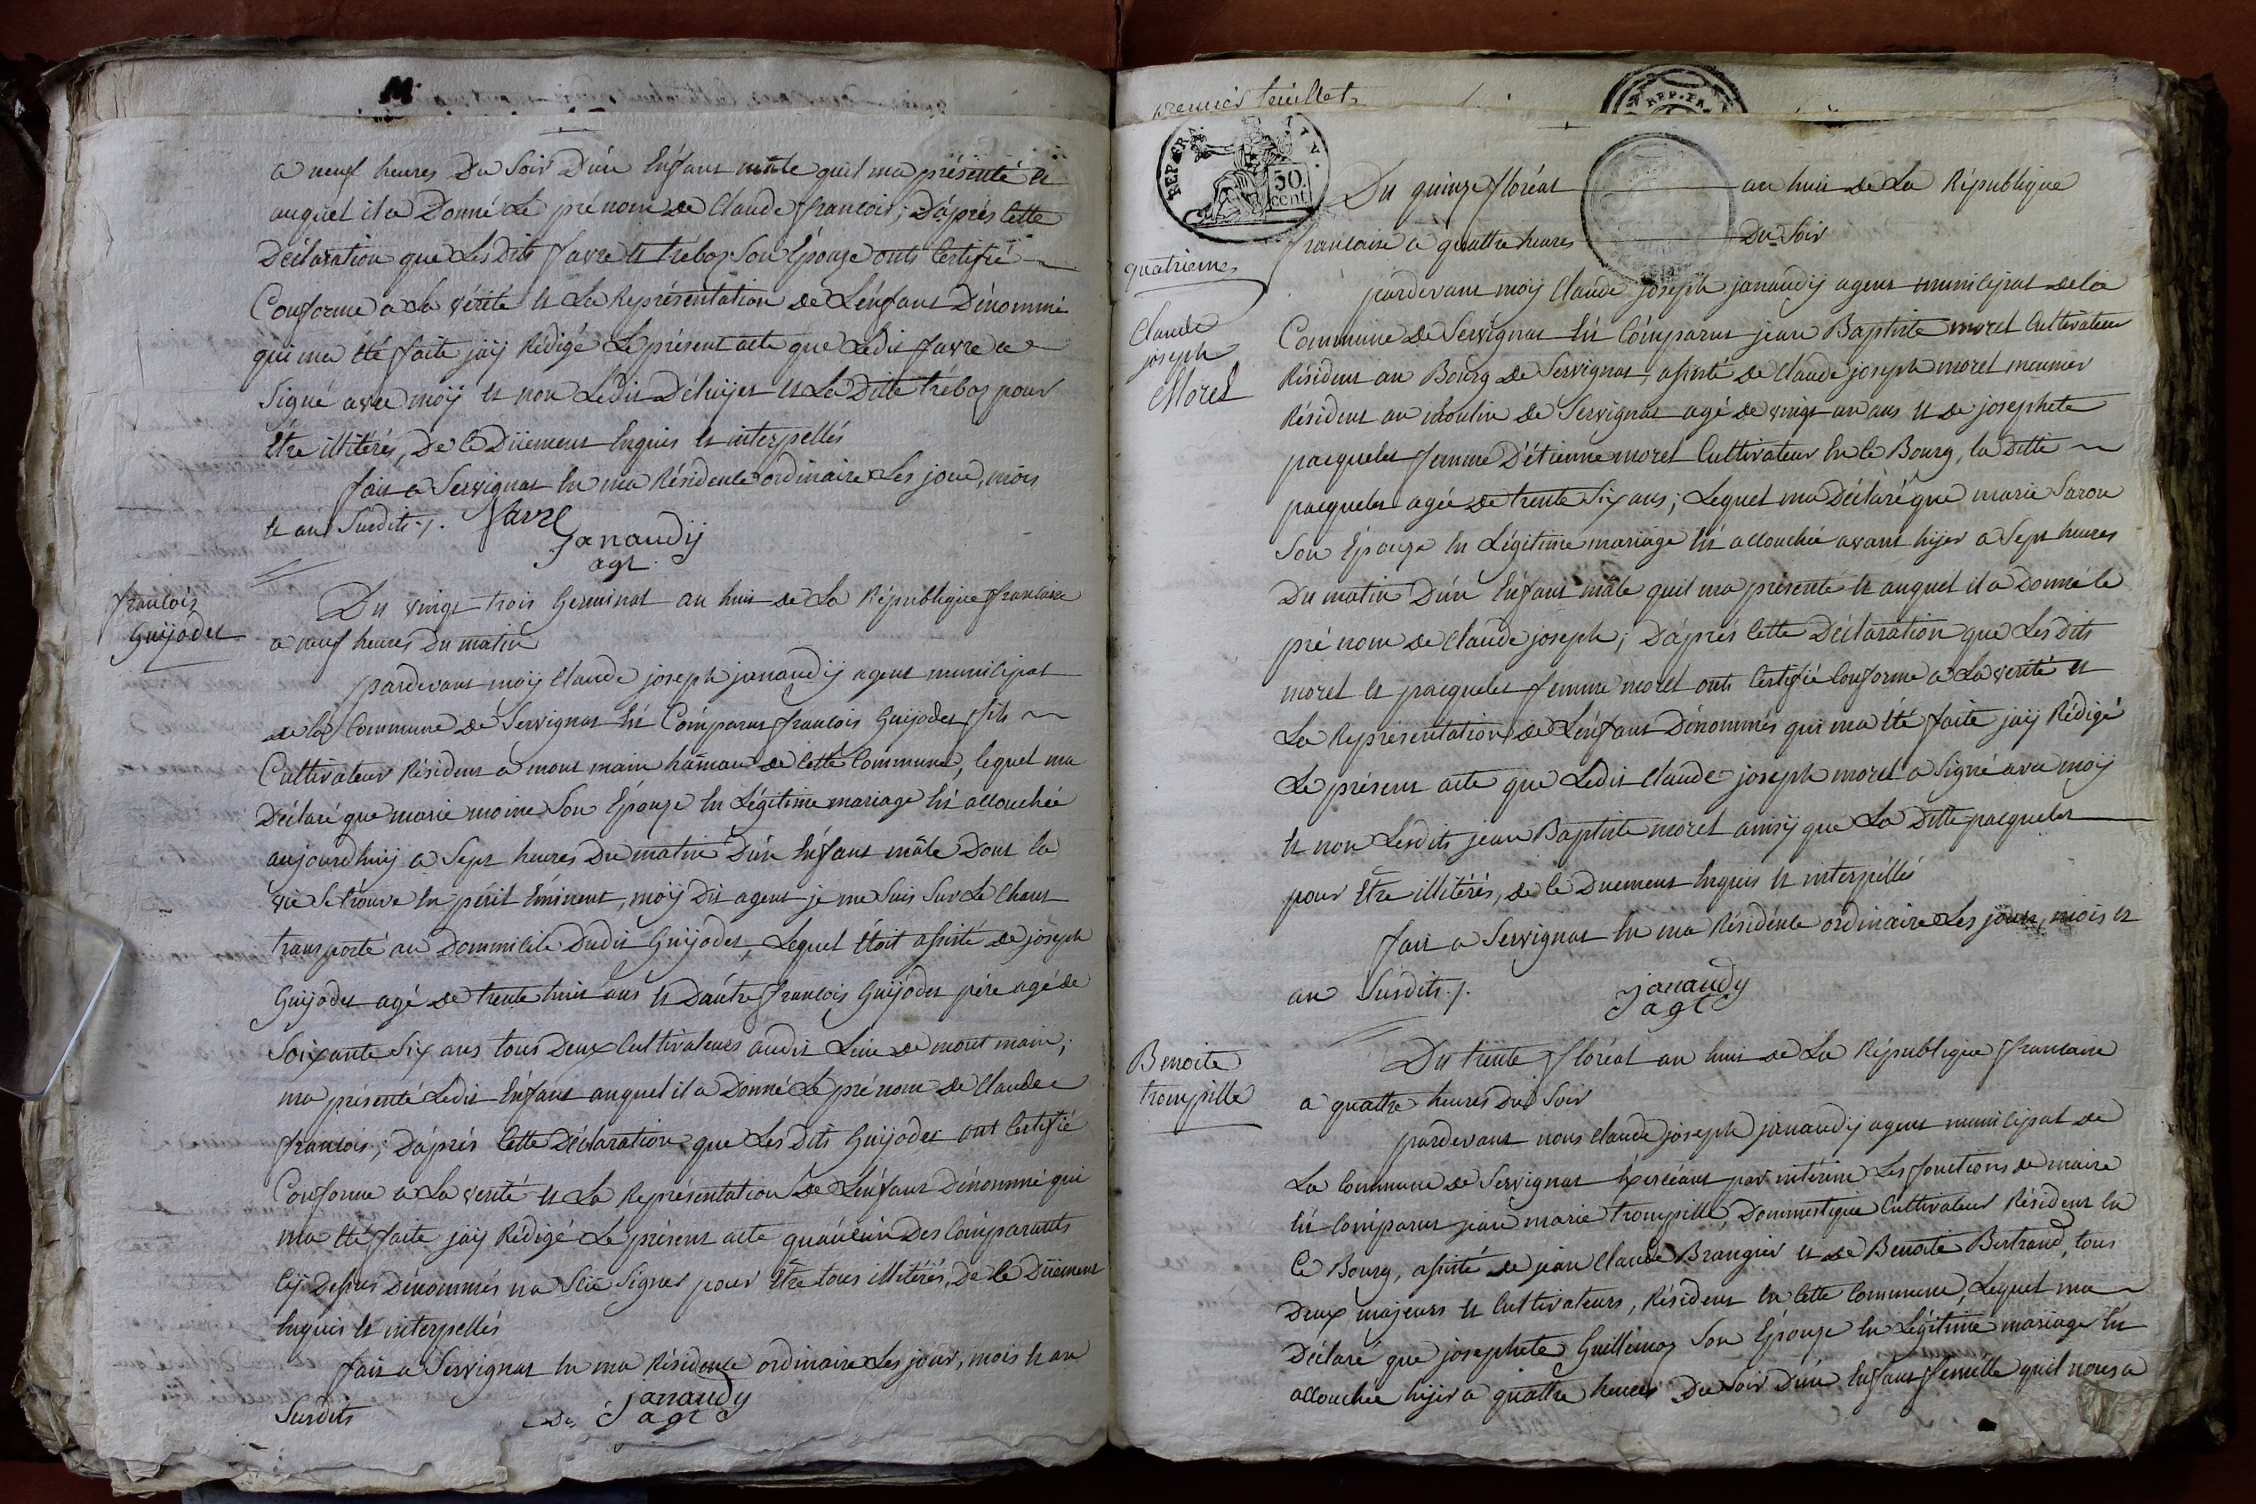 a neuf heures Du Soir D'un Enfant mâle quil ma présenté et
auquel il a Donné Le prénom de Claude françois ; D'après cette
Déclaration que Les Dits favre et Tréboz Son Epouze onts Certifié
Conforme a La vérité et La Représentation de L'énfant Dénommé
qui ma été faite jaÿ Rédigé Le présent acte que Ledit favre a
Signé avec moÿ et non Ledit et La Ditte Tréboz pour
être illitérés, De ce Düement Enquis et interpellés
fait a Servignat En ma Résidence ordinaire Les jour, mois
et an Susdits ./.
favre
Janaudÿ
agt.
françois
Guÿodet
Du vingt trois Germinal an huit de La République françaice
a neuf heures Du matin
pardevant moÿ Claude joseph janaudÿ agent municipal
de la Commune de Servignat Est Comparut françois Guÿodet fils
Cultivateur Résident a mont main hamau de cette Commune, lequel ma
Déclaré que marie moine Son Epouze En Légitime mariage Est accouchée
aujourdhuÿ a Sept heures Du matin D'un Enfant mâle Dont la
vie Se trouve En péril Eminent, moÿ Dit agent je me Suis Sur Le Chant
transporté au Dommicile Dudit Guÿodet, Lequel étoit assisté de joseph
Guÿodet agé de trente huit ans et D'autre françois Guÿodet père agé de
Soixante Six ans tous Deux Cultivateurs audit Lieu de mont main ;
ma présenté Ledit Enfant auquel il a Donné Le prénom de Claude
francois ; D'après Cette Déclaration que Les Dits Guÿodet ont Certifié
Conforme a La verité et La Représentation De L'énfant Dénommé qui
ma été faite jaÿ Rédigé Le présent acte qu'aucun Des Comparants
Cÿ Dessus Dénommés na Scu Signer pour Etre tous illitérés, De ce Düement
Enquis et interpellés
fait a Servignat En ma Résidence ordinaire Les jour, mois et an
Susdits
Janaudy
agt
premier feuillet
REP.FRA.
50
cent
Du quinze floréal an huit de La République
francaise a quattre heures Du Soir
quatrieme
Claude
joseph
Morel
pardevant moÿ Claude joseph janaudÿ agent municipal de la
Commune de Servignat Est Comparut jean Baptiste morel Cultivateur
Résident au Bourg de Servignat, assisté de Claude joseph morel meunier
Résident au moulin de Servignat agé de vingt un ans et de josephete
pacquelet femme D'étienne morel Cultivateur En ce Bourg, la Ditte
pacquelet agée de trente Six ans ; Lequel ma Déclaré que marie Saron
Son Epouze En Légitime mariage Est accouchée avant hijer a Sept heures
Du matin D'un Enfant mâle quil ma présenté et auquel il a Donné le
pré nom de Claude joseph ; D'après Cette Déclaration que Les dits
morel et pacquelet femme morel onts Certifié Conforme a La verité et
La Représentation de L'énfant Dénommés qui ma été faite jaÿ Rédigé
Le présent acte que Ledit Claude joseph morel a Signé avec moÿ
et non Lesdits jean Baptiste morel ainsÿ que La Ditte pacquelet
pour Etre illitérés, de ce Duement Enquis et interpéllés
fait a Servignat En ma Résidence ordinaire Les jour, mois et
an Susdits ./.
Janaudy
agt
Benoite
trompille
Du trente floréal an huit de La République francaise
a quattre heures Du Soir
pardevant nous Claude joseph janaudÿ agent municipal de
La Commune de Servignat Exercéant par intérim Les fonctions de maire
Est Comparut jean marie trompille, Dommestique Cultivateur Résident En
Ce Bourg, assisté de jean Claude Brangier et de Benoite Bertrand, tous
Deux majeurs et Cultivateurs, Résident En Cette Commune, Lequel ma
Déclaré que josephete Guillemoz Son Epouze En Légitime mariage Est
accouchée hijer a quattre heures Du Soir D'un Enfant femelle quil nous a